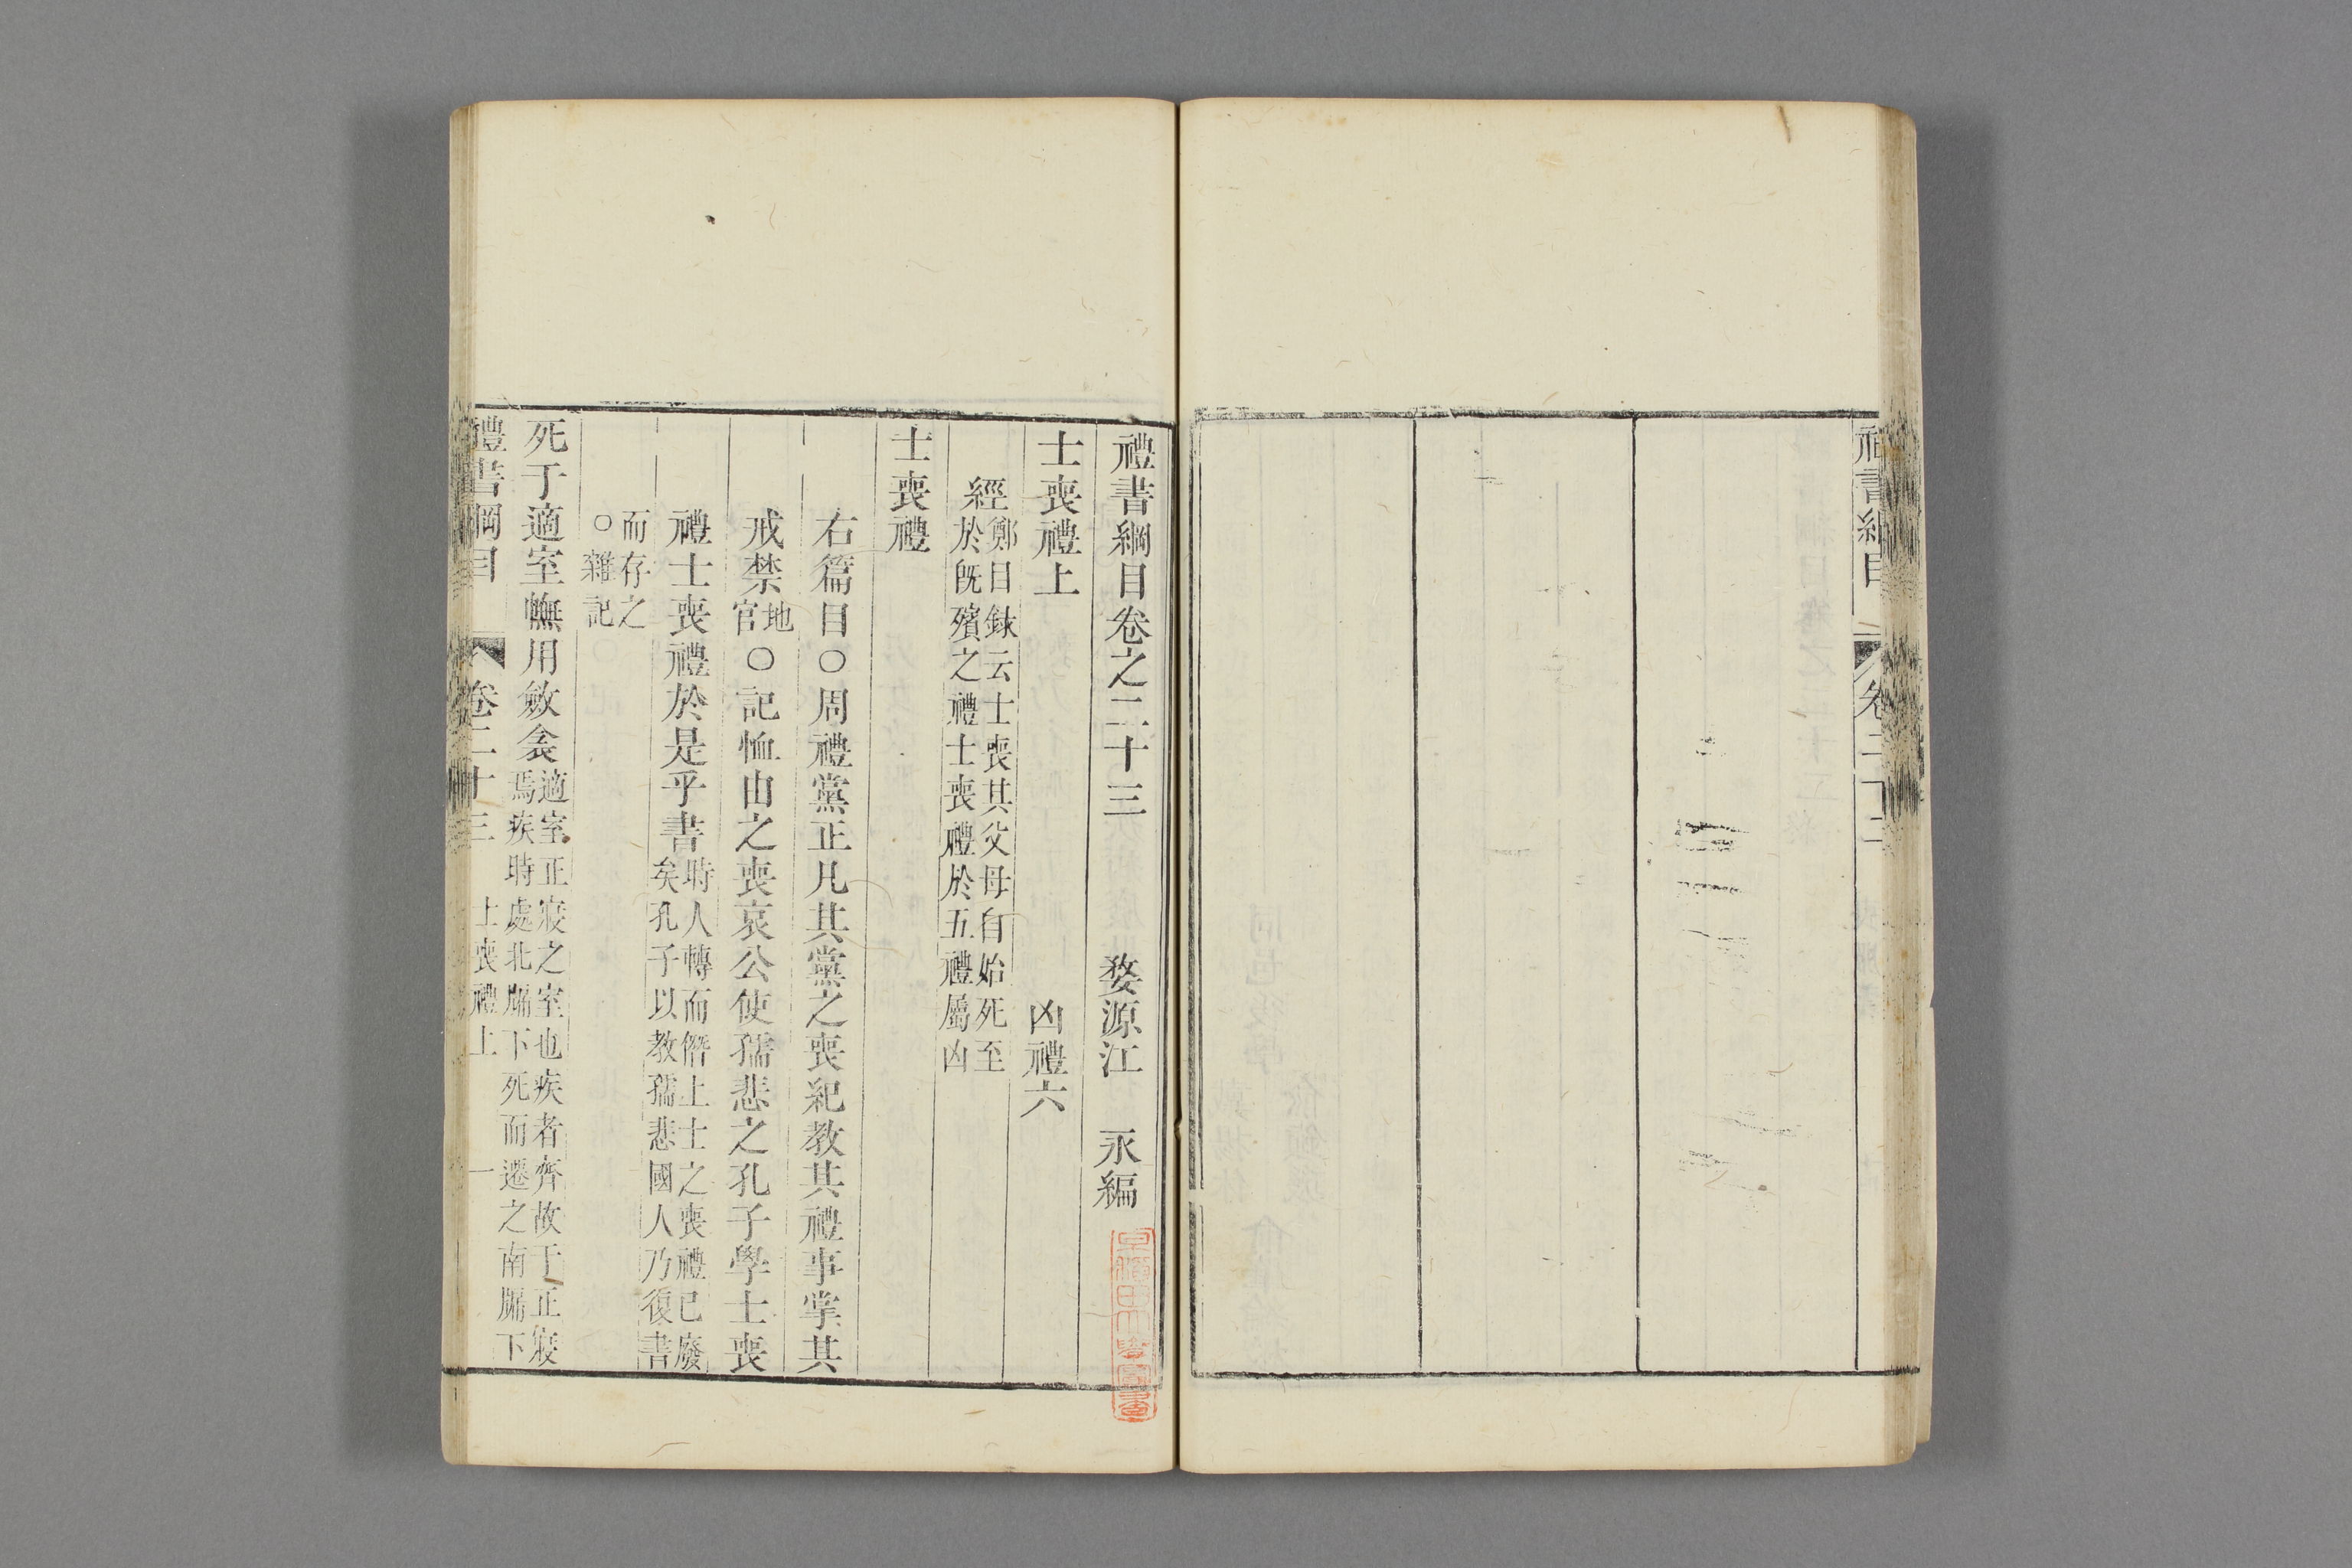 禮書綱目
禮書綱目卷之二十三　婺源江　永編
士喪禮上　凶禮六
經鄭目録云士喪其父母自始死至
於旣殯之禮士喪禮於五禮屬凶
士喪禮
右篇目○周禮黨正凡其黨之喪紀教其禮事掌其
戒禁地官○記恤由之喪哀公使孺悲之孔子學士喪
禮士喪禮於是乎書時人轉而僭上士之喪禮已廢
矣孔子以教孺悲國人乃復書
而存之
○雜記
死于適室幠用斂衾適室正寢之室也疾者齊故于正寢
焉疾時處北牖下死而遷之南牖下
禮書綱目　卷二十三　士喪禮上　一